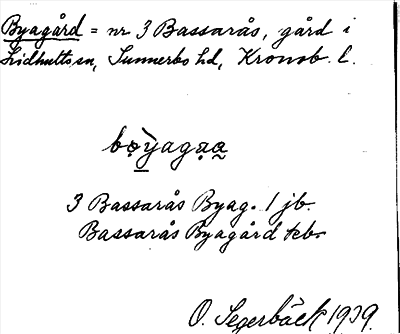 Byagård = nr 3 Bassarås, gård i
Lidhults sn, Sunnerbo hd, Kronob. l.
3 Bassarås Byag. 1 jb.
Bassarås Byagård kbr
O. Segerbäck 1939.